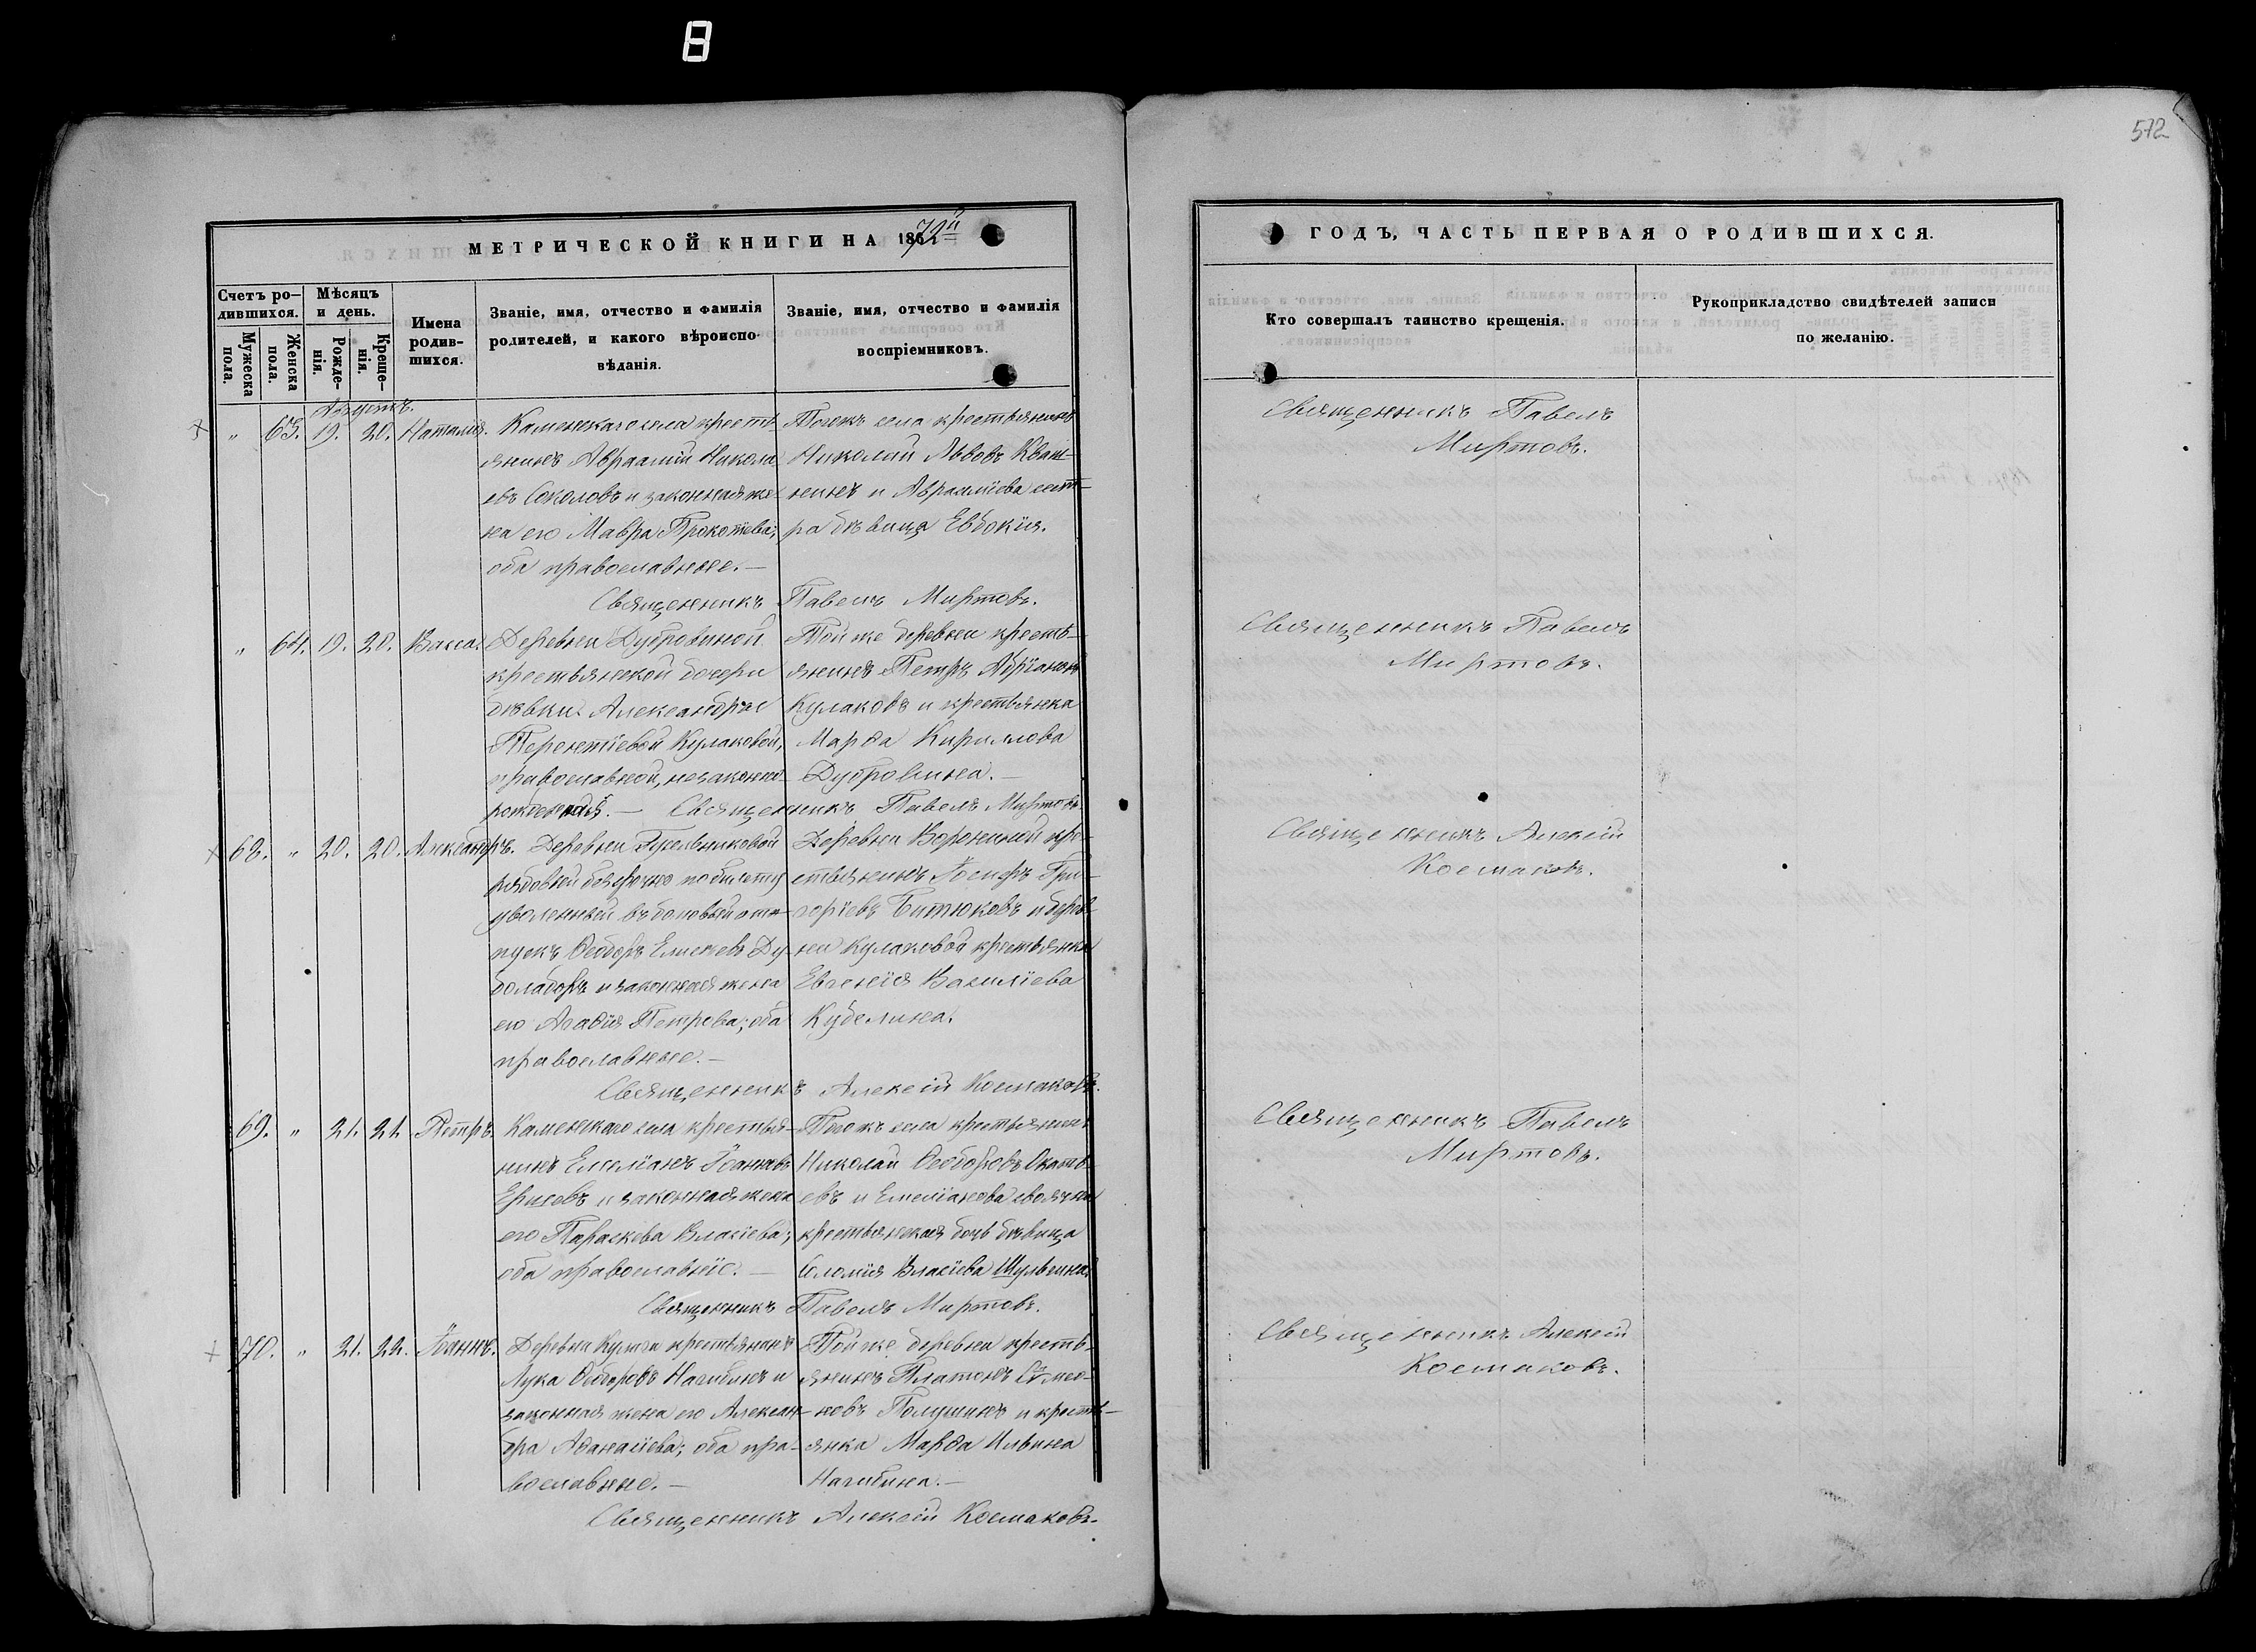 8
572
МЕТРИЧЕСКОЙ КНИГИ НА 1872й
ГОДЪ, ЧАСТЬ ПЕРВАЯ О РОДИВШИХСЯ.
Счетъ ро-
дившихся.
Мужеска
пола.
Женска
пола.
Мѣсяцъ
и день.
Рожде-
нія.
Креще-
нія.
Имена
родив-
шихся.
Званіе, имя, отчество и фамилія
родителей, и какого вѣроиспо-
вѣданія.
Званіе, имя, отчество и фамилія
воспріемниковъ.
Кто совершалъ таинство крещенія.
Рукоприкладство свидѣтелей записи
по желанію.
Августъ.
" 63. 19. 20. Наталія.
Каменскаго села кресть-
янинъ Авраамій Никола-
евъ Соколовъ и законная же-
на его Мавра Прокопіева;
оба православные.—
Тогожъ села крестьянинъ
Николай Львовъ Кваш-
нинъ и Авраамiева сест-
ра дѣвица Евдокія.
Священникъ Павелъ Миртовъ.
Священникъ Павелъ
Миртовъ.
" 64. 19. 20. Васса.
Деревни Дубровиной
крестьянской дочери
дѣвки Александры
Терентіевой Кулаковой,
православной, незаконно-
рожденная.—
Той же деревни кресть-
янинъ Петръ Адріановъ
Кулаковъ и крестьянка
Марѳа Кириллова
Дубровина.—
Священникъ Павелъ Миртовъ.
Священникъ Павелъ
Миртовъ.
68. " 20. 20. Александръ.
Деревни
рядовый безсрочно по билету
уволенный въ домовый от-
пускъ Ѳеодоръ Елисѣевъ Ду-
доладовъ и законная жена
его Агаѳія Петрова; оба
православные.—
Деревни Ворониной кре-
стьянинъ Іосифъ Гри-
горіевъ Битюковъ и дерев-
ни Кулаковой крестьянка
Евгенія Василіева
Куделина.
Священникъ Алексій Космаковъ.
Священникъ Алексій
Космаковъ.
69. " 21. 21. Петръ.
Каменскаго села крестья-
нинъ Емеліанъ Іоанновъ
и законная жена
его Параскева Власіева;
оба православные.—
Тогожъ села крестьянинъ
Николай Ѳеодоровъ
евъ и Емеліанова своячина
крестьянская дочь дѣвица
Соломія Власіева Шульгина.
Священникъ Павелъ Миртовъ.
Священникъ Павелъ
Миртовъ.
70. " 21. 22. Іоаннъ.
Деревни Кулиги крестьянинъ
Лука Ѳеодоровъ Нагибинъ и
законная жена его Алексан-
дра Аѳанасіева; оба пра-
вославные.—
Той же деревни кресть-
янинъ Платонъ Симео-
новъ Полушинъ и кресть-
янка Марѳа Ильина
Нагибина.—
Священникъ Алексій Космаковъ.
Священникъ Алексій
Космаковъ.